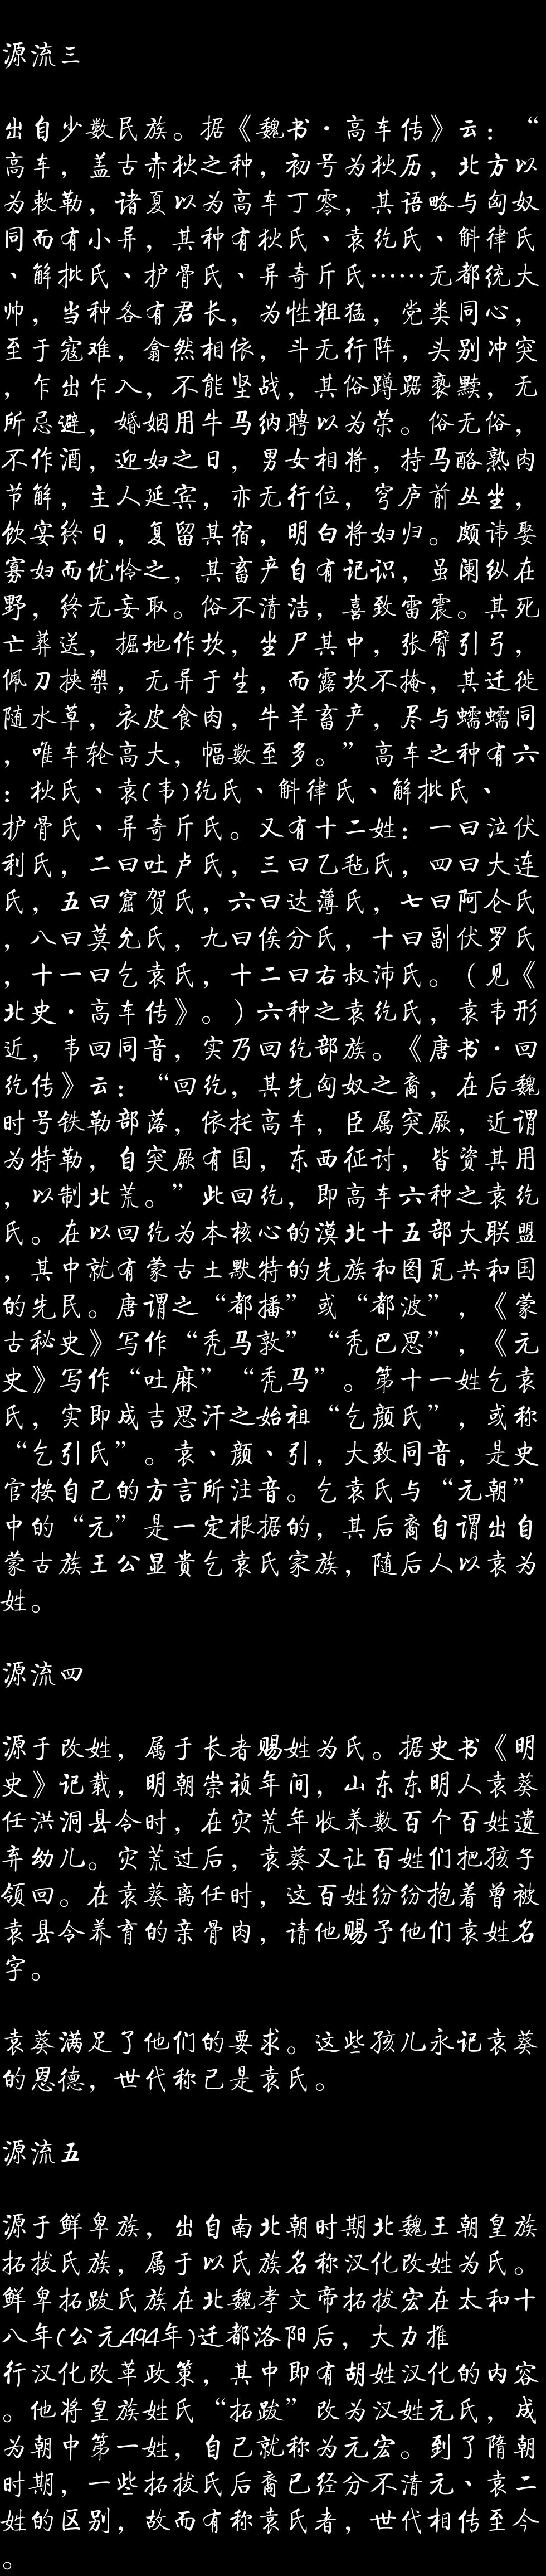 源流三
出自少数民族。据《魏书·高车传》云：“
高车，盖古赤狄之种，初号为狄历，北方以
为敕勒，诸夏以为高车丁零，其语略与匈奴
同而有小异，其种有狄氏、袁纥氏、斛律氏
、解批氏、护骨氏、异奇斤氏……无都统大
帅，当种各有君长，为性粗猛，党类同心，
至于寇难，翕然相依，斗无行阵，头别冲突
，乍出乍入，不能坚战，其俗蹲踞亵黩，无
所忌避，婚姻用牛马纳聘以为荣。俗无俗，
不作酒，迎妇之日，男女相将，持马酪熟肉
节解，主人延宾，亦无行位，穹庐前丛坐，
饮宴终日，复留其宿，明白将妇归。颇讳娶
寡妇而优怜之，其畜产自有记识，虽阑纵在
野，终无妄取。俗不清洁，喜致雷震。其死
亡葬送，掘地作坎，坐尸其中，张臂引弓，
佩刀挟槊，无异于生，而露坎不掩，其迁徙
随水草，衣皮食肉，牛羊畜产，尽与蠕蠕同
，唯车轮高大，幅数至多。”高车之种有六
：狄氏、袁(韦)纥氏、斛律氏、解批氏、
护骨氏、异奇斤氏。又有十二姓：一曰泣伏
利氏，二曰吐卢氏，三曰乙毡氏，四曰大连
氏，五曰窟贺氏，六曰达薄氏，七曰阿仑氏
，八曰莫允氏，九曰俟分氏，十曰副伏罗氏
，十一曰乞袁氏，十二曰右叔沛氏。（见《
北史·高车传》。）六种之袁纥氏，袁韦形
近，韦回同音，实乃回纥部族。《唐书·回
纥传》云：“回纥，其先匈奴之裔，在后魏
时号铁勒部落，依托高车，臣属突厥，近谓
为特勒，自突厥有国，东西征讨，皆资其用
，以制北荒。”此回纥，即高车六种之袁纥
氏。在以回纥为本核心的漠北十五部大联盟
，其中就有蒙古土默特的先族和图瓦共和国
的先民。唐谓之“都播”或“都波”，《蒙
古秘史》写作“秃马敦”“秃巴思”，《元
史》写作“吐麻”“秃马”。第十一姓乞袁
氏，实即成吉思汗之始祖“乞颜氏”，或称
“乞引氏”。袁、颜、引，大致同音，是史
官按自己的方言所注音。乞袁氏与“元朝”
中的“元”是一定根据的，其后裔自谓出自
蒙古族王公显贵乞袁氏家族，随后人以袁为
姓。
源流四
源于改姓，属于长者赐姓为氏。据史书《明
史》记载，明朝崇祯年间，山东东明人袁葵
任洪洞县令时，在灾荒年收养数百个百姓遗
弃幼儿。灾荒过后，袁葵又让百姓们把孩子
领回。在袁葵离任时，这百姓纷纷抱着曾被
袁县令养育的亲骨肉，请他赐予他们袁姓名
字。
袁葵满足了他们的要求。这些孩儿永记袁葵
的恩德，世代称己是袁氏。
源流五
源于鲜卑族，出自南北朝时期北魏王朝皇族
拓拔氏族，属于以氏族名称汉化改姓为氏。
鲜卑拓跋氏族在北魏孝文帝拓拔宏在太和十
八年(公元494年)迁都洛阳后，大力推
行汉化改革政策，其中即有胡姓汉化的内容
。他将皇族姓氏“拓跋”改为汉姓元氏，成
为朝中第一姓，自己就称为元宏。到了隋朝
时期，一些拓拔氏后裔已经分不清元、袁二
姓的区别，故而有称袁氏者，世代相传至今
。